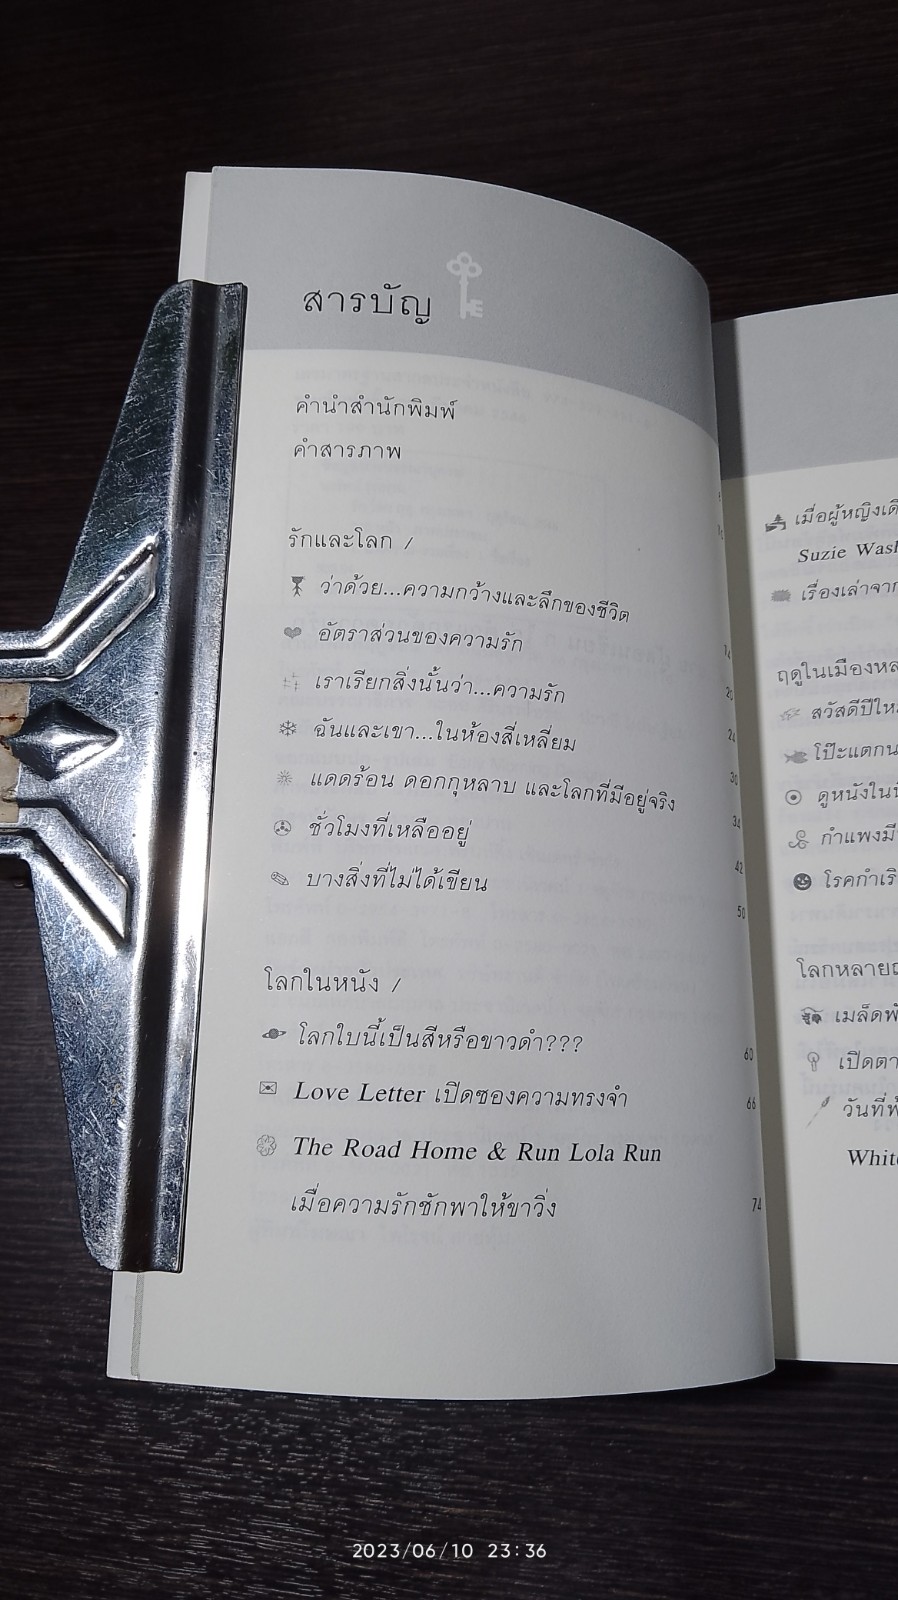 สารบัญ
คำนำสำนักพิมพ์
คำสารภาพ
รักและโลก /
ว่าด้วย...ความกว้างและลึกของชีวิต
อัตราส่วนของความรัก 14
เราเรียกสิ่งนั้นว่า...ความรัก 20
ฉันและเขา...ในห้องสี่เหลี่ยม 24
แดดร้อน ดอกกุหลาบ และโลกที่มีอยู่จริง 30
ชั่วโมงที่เหลืออยู่ 34
บางสิ่งที่ไม่ได้เขียน 42
50
โลกในหนัง /
โลกใบนี้เป็นสีหรือขาวดำ??? 60
Love Letter เปิดซองความทรงจำ 66
The Road Home & Run Lola Run
เมื่อความรักชักพาให้ขาวิ่ง 74
เมื่อผู้หญิง
Suzie
เรื่องเล่าจาก
ฤดูในเมือง
สวัสดีปี
โป๊ะแตก
ดูหนังใน
กำแพงมี
โรค
โลกหลาย
เมล็ด
เปิดตา
วันที่
2023/06/10 23:36